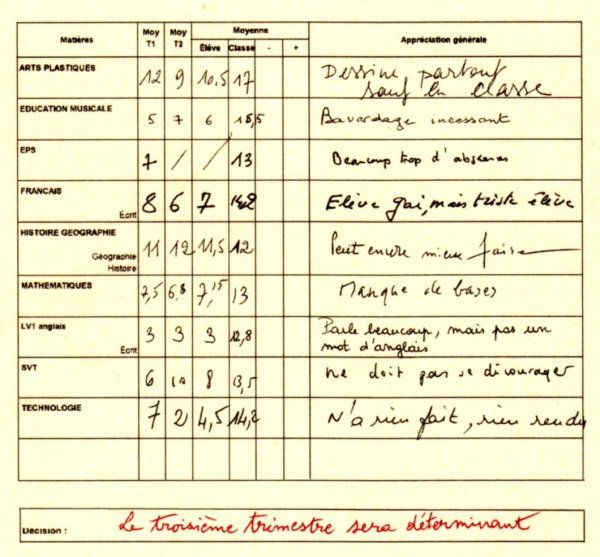 Matières Moy T1 Moy T2 Moyenne Appréciation générale
Élève Classe - +
ARTS PLASTIQUES 12 9 10,5 17 Dessine partout
sauf en classe
EDUCATION MUSICALE 5 7 6 15,5 Bavardage incessant
EPS 7 / / 13 Beaucoup trop d'absences
FRANCAIS 8 6 7 14,2 Elève gai, mais triste élève
Écrit
HISTOIRE GEOGRAPHIE 11 12 11,5 12 Peut encore mieux faire
Géographie
Histoire
MATHEMATIQUES 7,5 6,8 7,15 13 Manque de bases
LV1 anglais 3 3 3 12,8 Parle beaucoup, mais pas un
Écrit mot d'anglais
SVT 6 10 8 13,5 ne doit pas se décourager
TECHNOLOGIE 7 2 4,5 14,2 N'a rien fait, rien rendu
Décision : Le troisième trimestre sera déterminant